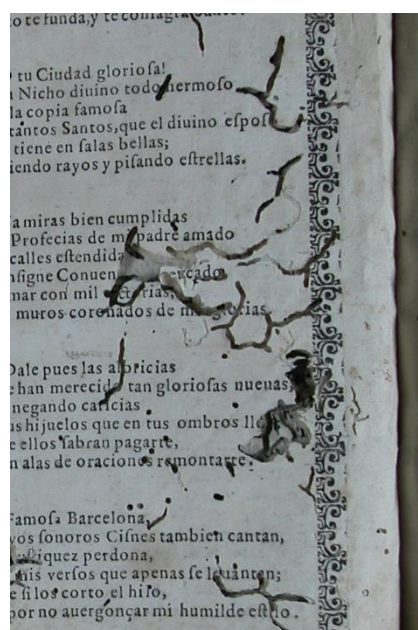 to te funda, y te
tu Ciudad gloriosa!
Nicho diuino todo hermoso
la copia famosa
tantos Santos, que el diuino espos
tiene en salas bellas;
iendo rayos y pisando estrellas.
a miras bien cumplidas
Profecias de mi padre amado
calles estendida
nsigne Conuen cercado
mar con mil torias,
muros coronados de mil glorias
Dale pues las albricias
e han merecido tan gloriosas nueuas,
negando caricias
us hijuelos que en tus ombros lle
e ellos sabran pagarte,
n alas de oraciones remontarte.
Famosa Barcelona,
vos sonoros Cisnes tambien cantan,
iquez perdona,
mis versos que apenas se leuantan;
e si los corto el hilo,
por no auergonçar mi humilde estilo.